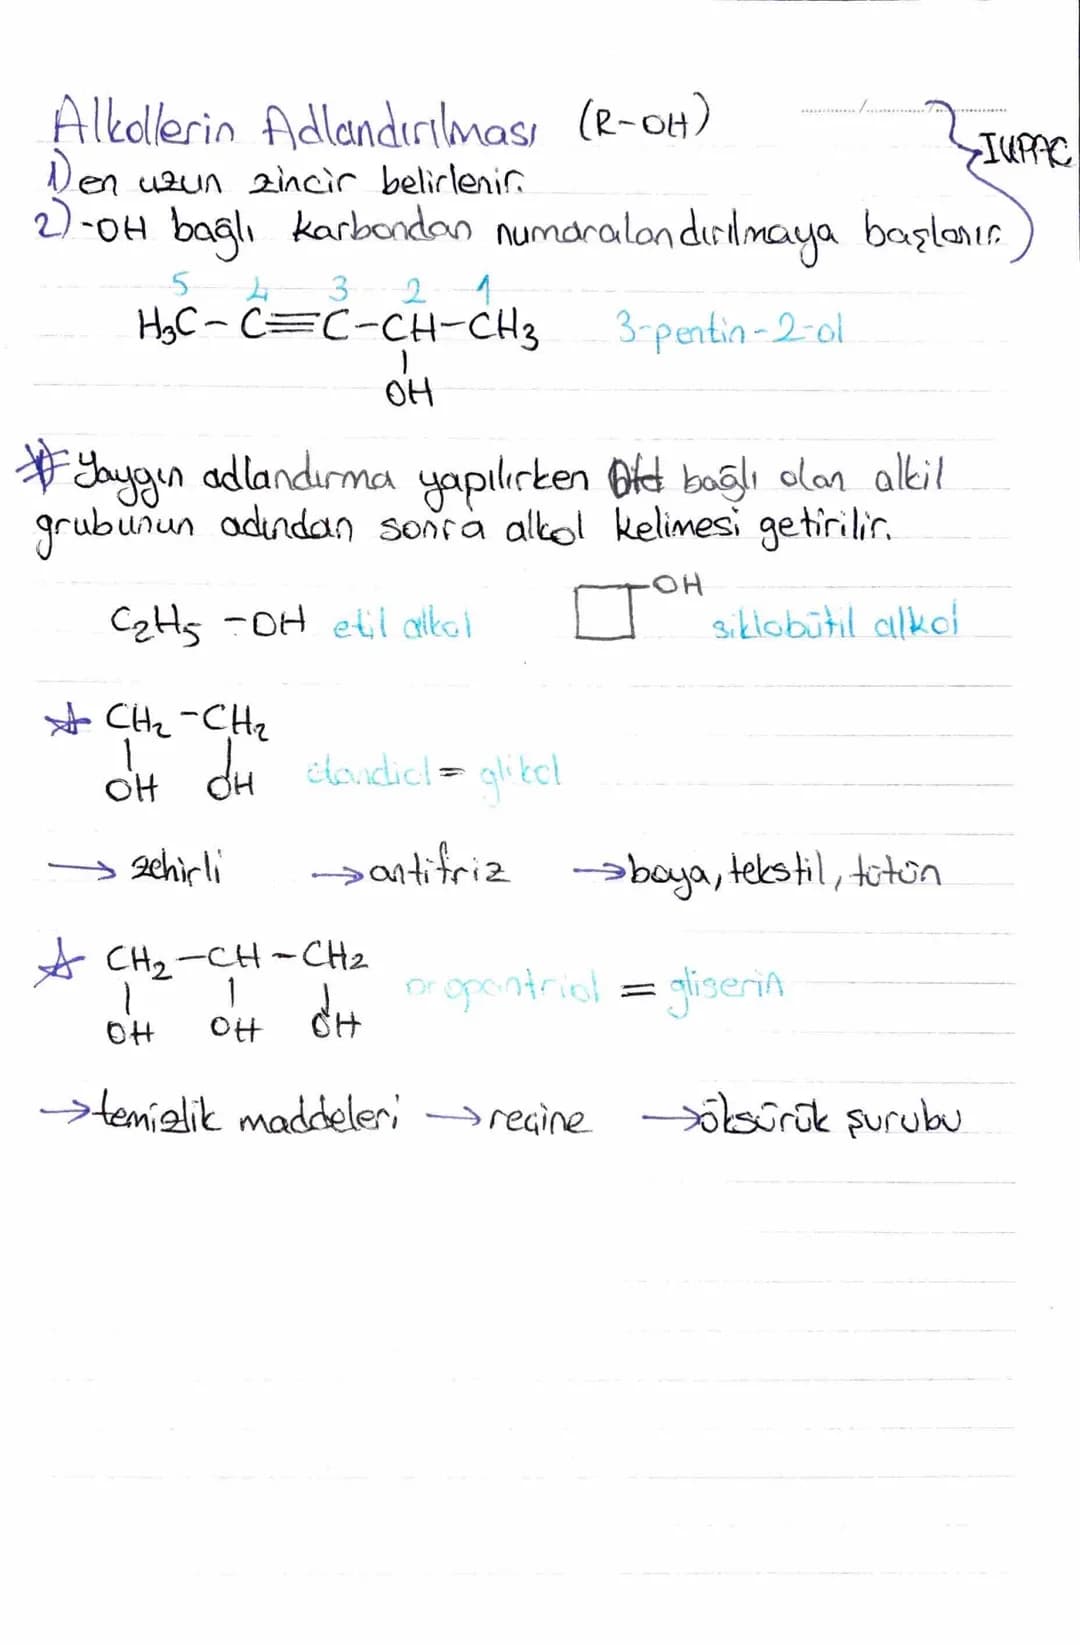 Alkollerin Adlandırılması (R-OH)
IUPAC
1) en uzun zincir belirlenir.
2) -OH bağlı karbondan numaralandırılmaya başlanır.
5 4 3 2 1
H3C-C≡C-CH-CH3 3-pentin-2-ol
OH
* Yaygın adlandırma yapılırken bağlı olan alkil
grubunun adından sonra alkol kelimesi getirilir.
C2H5-OH etil alkol
OH
siklobütil alkol
CH2-CH2
OH OH etandiol = glikol
→ zehirli → antifriz → boya, tekstil, tütün
CH2-CH-CH2
propantriol = gliserin
OH OH OH
→ temizlik maddeleri → reçine → öksürük şurubu